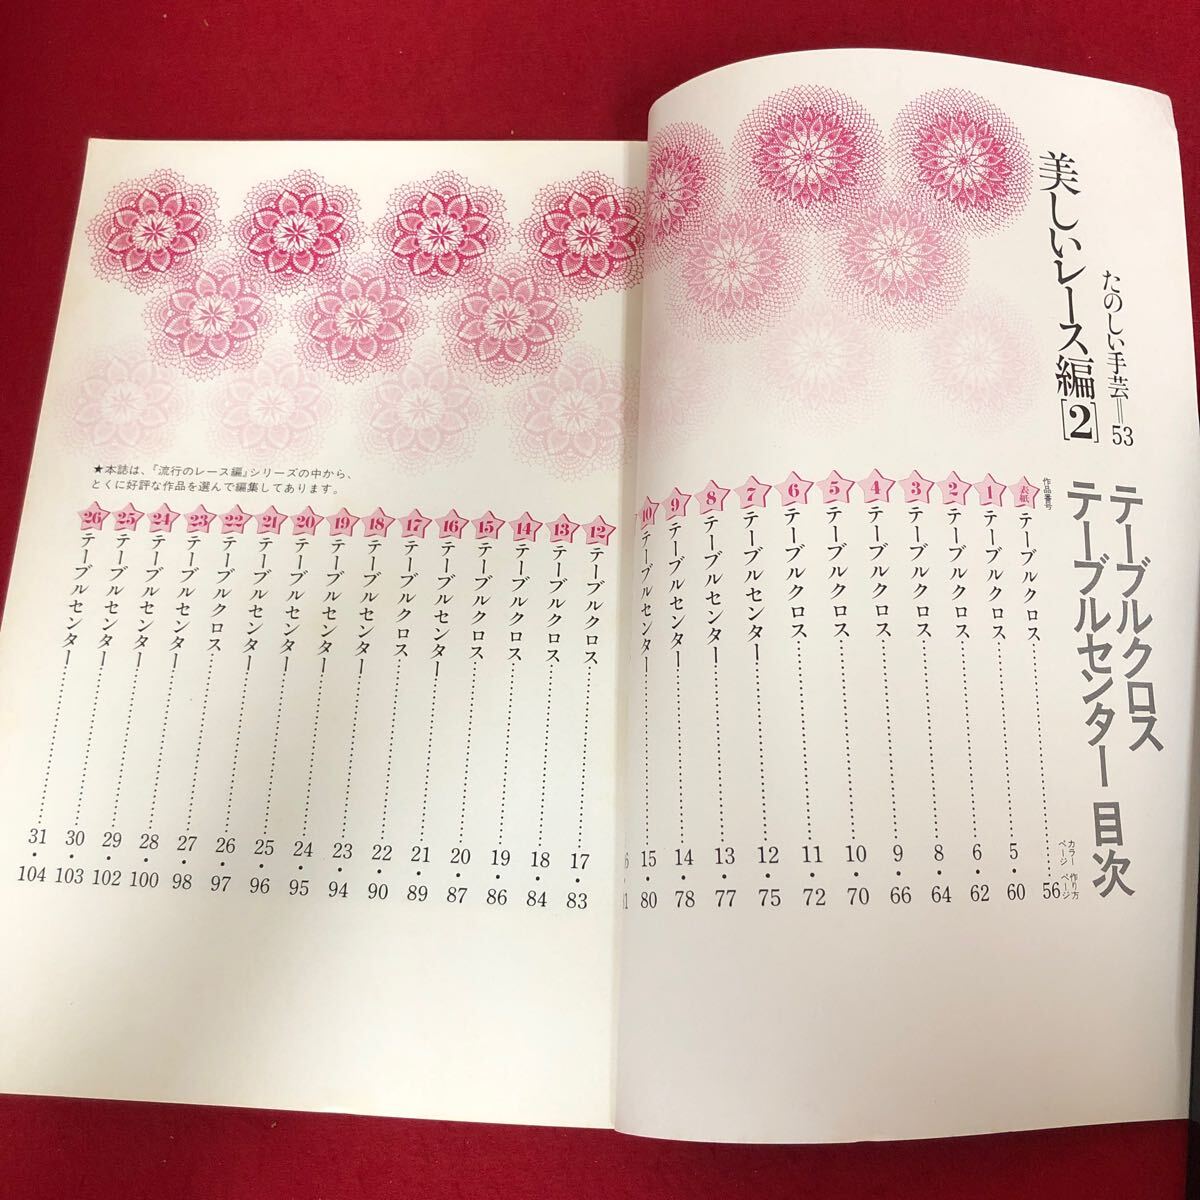 たのしい手芸＝53
美しいレース編[2]
テーブルクロス
テーブルセンター 目次
作品番号
カラーページ
作り方ページ
表紙 テーブルクロス……56
1 テーブルクロス……5・60
2 テーブルクロス……6・62
3 テーブルクロス……8・64
4 テーブルクロス……9・66
5 テーブルクロス……10・70
6 テーブルクロス……11・72
7 テーブルセンター……12・75
8 テーブルセンター……13・77
9 テーブルセンター……14・78
10 テーブルセンター……15・80
★本誌は、「流行のレース編」シリーズの中から、
とくに好評な作品を選んで編集してあります。
12 テーブルクロス……17・83
13 テーブルクロス……18・84
14 テーブルクロス……19・86
15 テーブルクロス……20・87
16 テーブルセンター……21・89
17 テーブルクロス……22・90
18 テーブルセンター……23・94
19 テーブルセンター……24・95
20 テーブルセンター……25・96
21 テーブルセンター……26・97
22 テーブルクロス……27・98
23 テーブルセンター……28・100
24 テーブルセンター……29・102
25 テーブルセンター……30・103
26 テーブルセンター……31・104